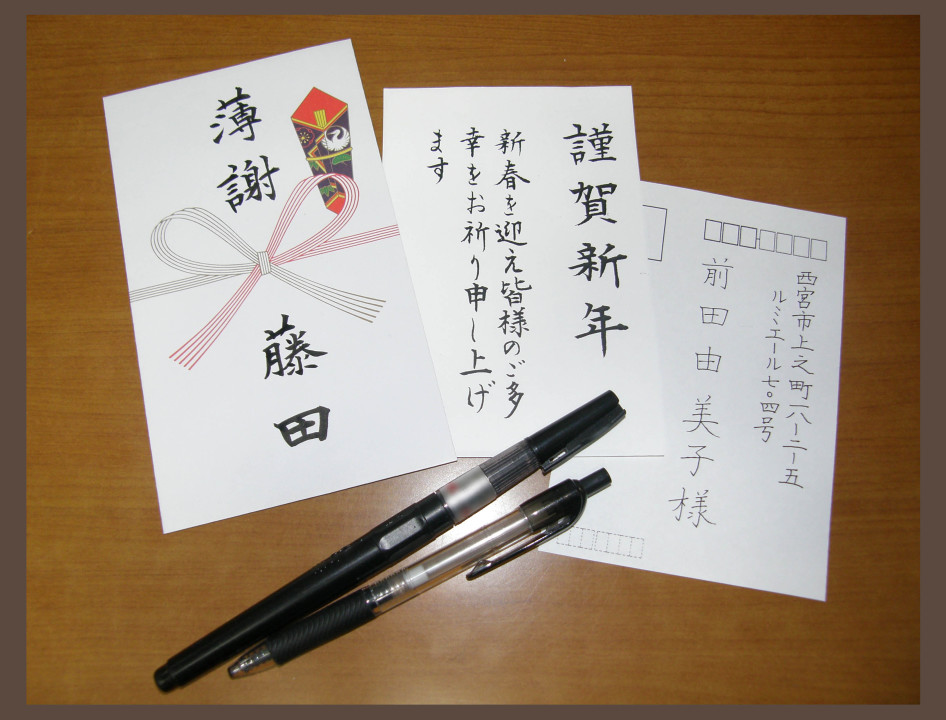 薄謝
藤田
謹賀新年
新春を迎え皆様のご多
幸をお祈り申し上げ
ます
西宮市上之町一八ー二ー五
ルミエール七〇四号
前田由美子様